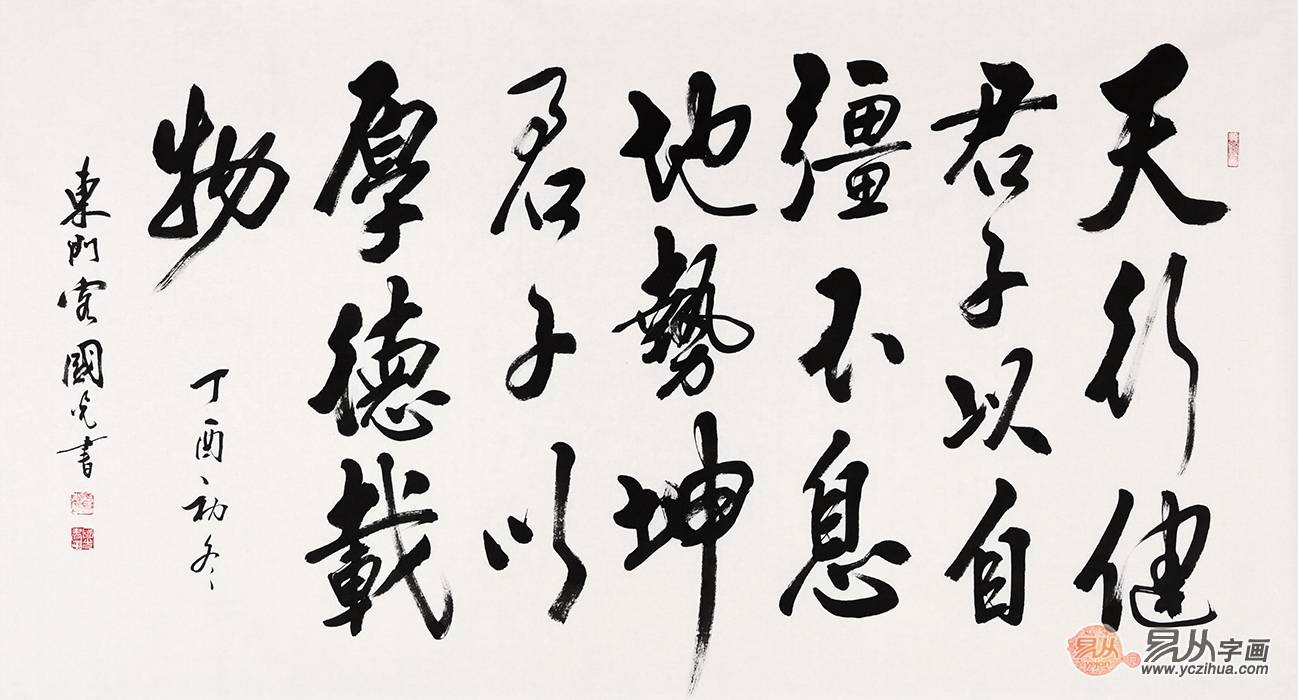 天行健
君子以自
彊不息
地勢坤
君子以
厚德載
物
丁酉初冬
東門客國光書
易从字画
www.yczihua.com
yicong